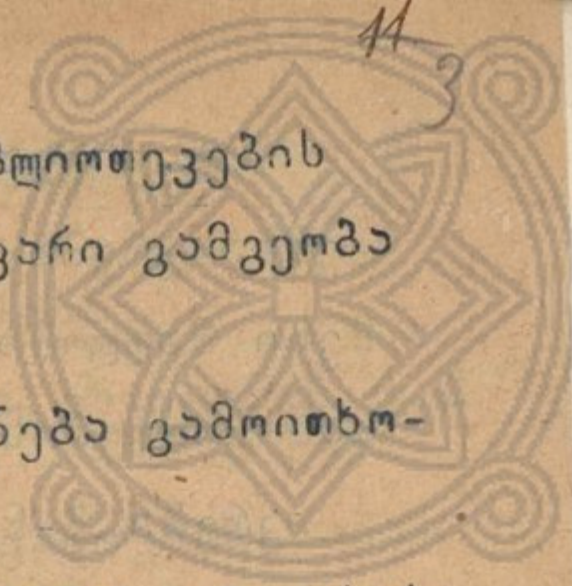 11
3
ბლიოთეკების
ვარი გამგეობა
ნება გამოითხო-